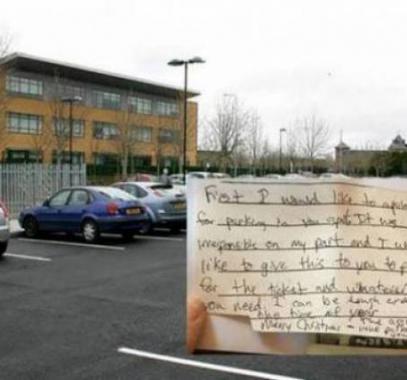 First I would like to
for parking in you spot. It was
irresponsible on my part and I
like to give this to you to
for the ticket and whatever
you need. I can be tough
this time of year
Merry Christmas - The
your